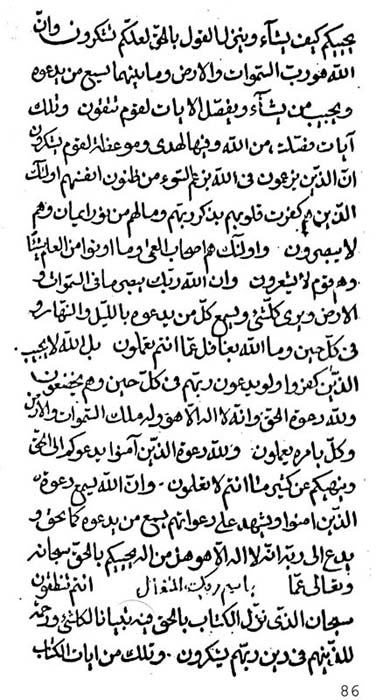 يجيبكم كيف يشآء وينزل القول بالحق لعلكم تشكرون وانّ
الله هو ربّ السّموات والارض وما بينهما يسمع من يدعوه
ويجيب من يشآء ويفصّل الايات لقوم تتقون وتلك
آيات مفصّلة من الله وفيها لهدى وموعظة لقوم يشكرون
انّ الذّين يزعون فى الله بزعم السّوء من ظنون انفسهم اولئك
الذّين كفرت قلوبهم بذكر ربّهم وما لهم من نور ايمان وهم
لا يبصرون واولئك هم اصحاب العمى وما اوتوا من العلم شيئًا
وهم قوم لا يشعرون وان الله ربّك يعلم ما فى السّموات و
الارض ويرى كلّ شئ ويسمع كلّ من يدعوه بالليل والنّهار و
فى كلّ حين وما الله بغافل عمّا انتم تعملون بل الله لا يجيب
الذّين كفروا ولو يدعون ربّهم فى كلّ حين وهم يخضعون
ولله دعوة الحق وانه لا اله الّا هو وله ملك السّموات والارض
وكلّ بامره يعملون ولله دعوة الذّين آمنوا يدعوكم الى الحق
وينهيكم عن كثير ما انتم لا تعلمون وانّ الله يسمع دعوة
الذّين امنوا ويشهد على دعواتهم يسمع من يدعوه كما يحق و
يدع الى ربّه انّه لا اله الّا هو هل من اله يجيبكم بالحق سبحانه
وتعالى عمّا باسم ربك المتعال انتم تنطقون
سبحان الذى نزّل الكتاب بالحق فيه تبيانا لكلّ شئ ورحمة
للذّينهم فى دين ربّهم يشكرون وتلك من ايات الكتاب
86